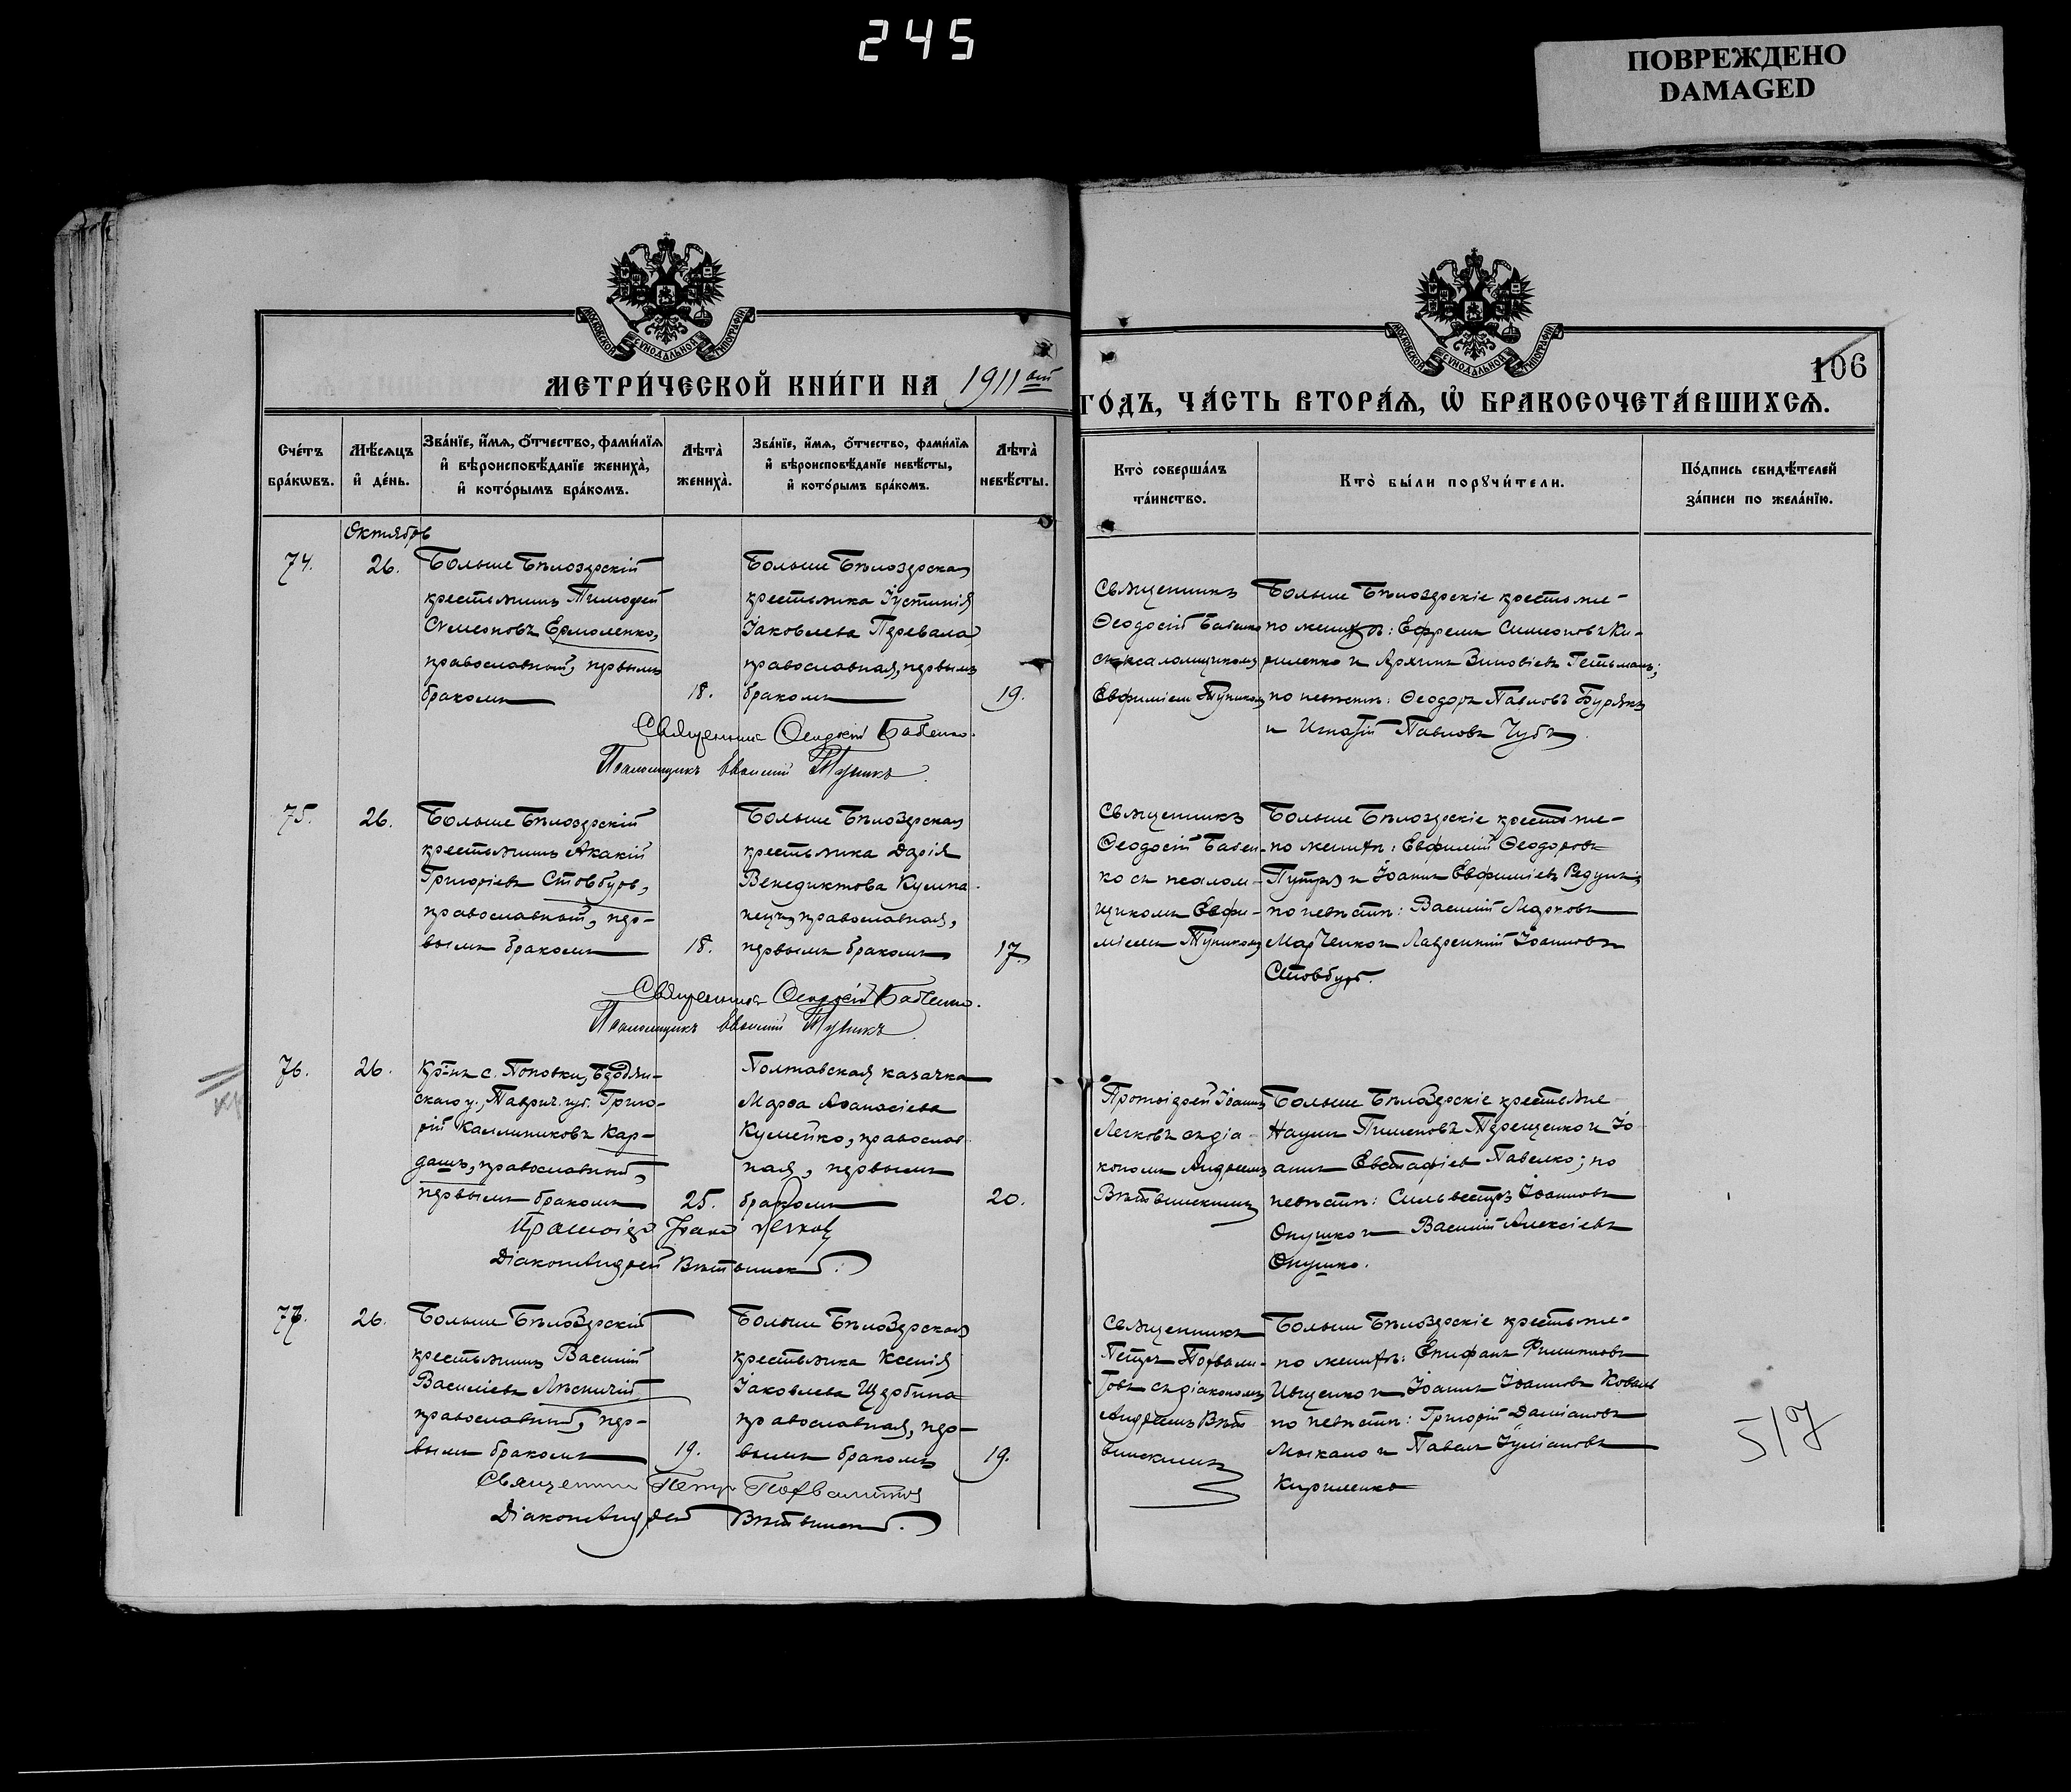 245
ПОВРЕЖДЕНО
DAMAGED
МОСКОВСКОЙ СѴНОДАЛЬНОЙ ТИПОГРАФІИ
МОСКОВСКОЙ СѴНОДАЛЬНОЙ ТИПОГРАФІИ
106
МЕТРИ́ЧЕСКОЙ КНИ́ГИ НА 1911 ый
ГО́ДЪ, ЧА́СТЬ ВТОРА́Ѧ, Ѽ БРАКОСОЧЕТА́ВШИХСѦ.
Сче́тъ бра́кѡвъ.
Мѣ́сѧцъ и҆ де́нь.
Зва́нїе, и҆́мѧ, ѻ҆́тчество, фами́лїѧ и҆ вѣроисповѣ́данїе жениха̀, и҆ кото́рымъ бра́комъ.
Лѣта̀ жениха̀.
Зва́нїе, и҆́мѧ, ѻ҆́тчество, фами́лїѧ и҆ вѣроисповѣ́данїе невѣ́сты, и҆ кото́рымъ бра́комъ.
Лѣта̀ невѣ́сты.
Кто̀ соверша́лъ та́инство.
Кто̀ бы́ли порꙋчи́тели.
По́дпись свидѣ́телей за́писи по жела́нїю.
Октябрь
74.
26.
Больше Бѣлозерскій
крестьянинъ Тимофей
Симеоновъ Ермоленко,
православный, первымъ
бракомъ
18.
Больше Бѣлозерская
крестьянка Іустинія
Іаковлева Перевала
православная, первымъ
бракомъ
19.
Священникъ
Ѳеодосій Бабенко
съ псаломщикомъ
Евфиміемъ Тупикомъ
Больше Бѣлозерскіе крестьяне-
по женихѣ: Ефремъ Симеоновъ Ки-
риленко и Архипъ Зиновіевъ Гетьманъ;
по невѣстѣ: Ѳеодоръ Павловъ Бурякъ
и Игнатій Павловъ Чубъ
Священникъ Ѳеодосій Бабенко.
Псаломщикъ Евфимій Тупикъ
75.
26.
Больше Бѣлозерскій
крестьянинъ Акакій
Григоріевъ Стовбуръ,
православный, пер-
вымъ бракомъ
18.
Больше Бѣлозерская
крестьянка Дарія
Венедиктова Кумпа-
нецъ, православная,
первымъ бракомъ
17.
Священникъ
Ѳеодосій Бабен-
ко съ псалом-
щикомъ Евфи-
міемъ Тупикомъ
Больше Бѣлозерскіе крестьяне-
по женихѣ: Евфимій Ѳеодоровъ
и Іоаннъ Евфиміевъ
по невѣстѣ: Василій Марковъ
Марченко и Лаврентій Іоанновъ
Стовбуръ.
Священникъ Ѳеодосій Бабенко.
Псаломщикъ Евфимій Тупикъ
76.
26.
Кр-нъ с. Поповки, Бердян-
скаго у., Таврич. губ. Григо-
рій Каллиниковъ Кар-
дашъ, православный,
первымъ бракомъ
25.
Полтавская казачка
Марѳа Аѳанасіева
Кумейко, православ-
ная, первымъ
бракомъ
20.
Протоіерей Іоаннъ
Легковъ съ діа-
кономъ Андреемъ
Вѣтвинскимъ
Больше Бѣлозерскіе крестьяне
Наумъ Пименовъ Терещенко и Іо-
аннъ Евстафіевъ Павелко; по
невѣстѣ: Сильвестръ Іоанновъ
Онушко и Василій Алексіевъ
Онушко.
Протоіер Іоаннъ Легковъ
Діаконъ Андрей Вѣтвинскій.
77.
26.
Больше Бѣлозерскій
крестьянинъ Василій
Василіевъ Лѣсничій
православный, пер-
вымъ бракомъ
19.
Больше Бѣлозерская
крестьянка Ксенія
Іаковлева Щербина
православная, пер-
вымъ бракомъ
19.
Священникъ
Петръ Похвали-
товъ съ діакономъ
Андреемъ Вѣт-
винскимъ
Больше Бѣлозерскіе крестьяне-
по женихѣ: Епифанъ Филипповъ
Ивщенко и Іоаннъ Іоанновъ Коваль
по невѣстѣ: Григорій Даміановъ
Москало и Павелъ Іуліановъ
Кириленко
Священникъ Петръ Похвалитовъ
Діаконъ Андрей Вѣтвинскій.
517